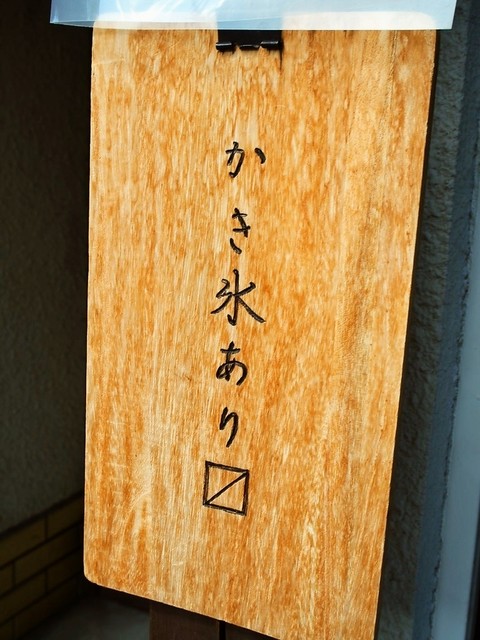 かき氷あり〼